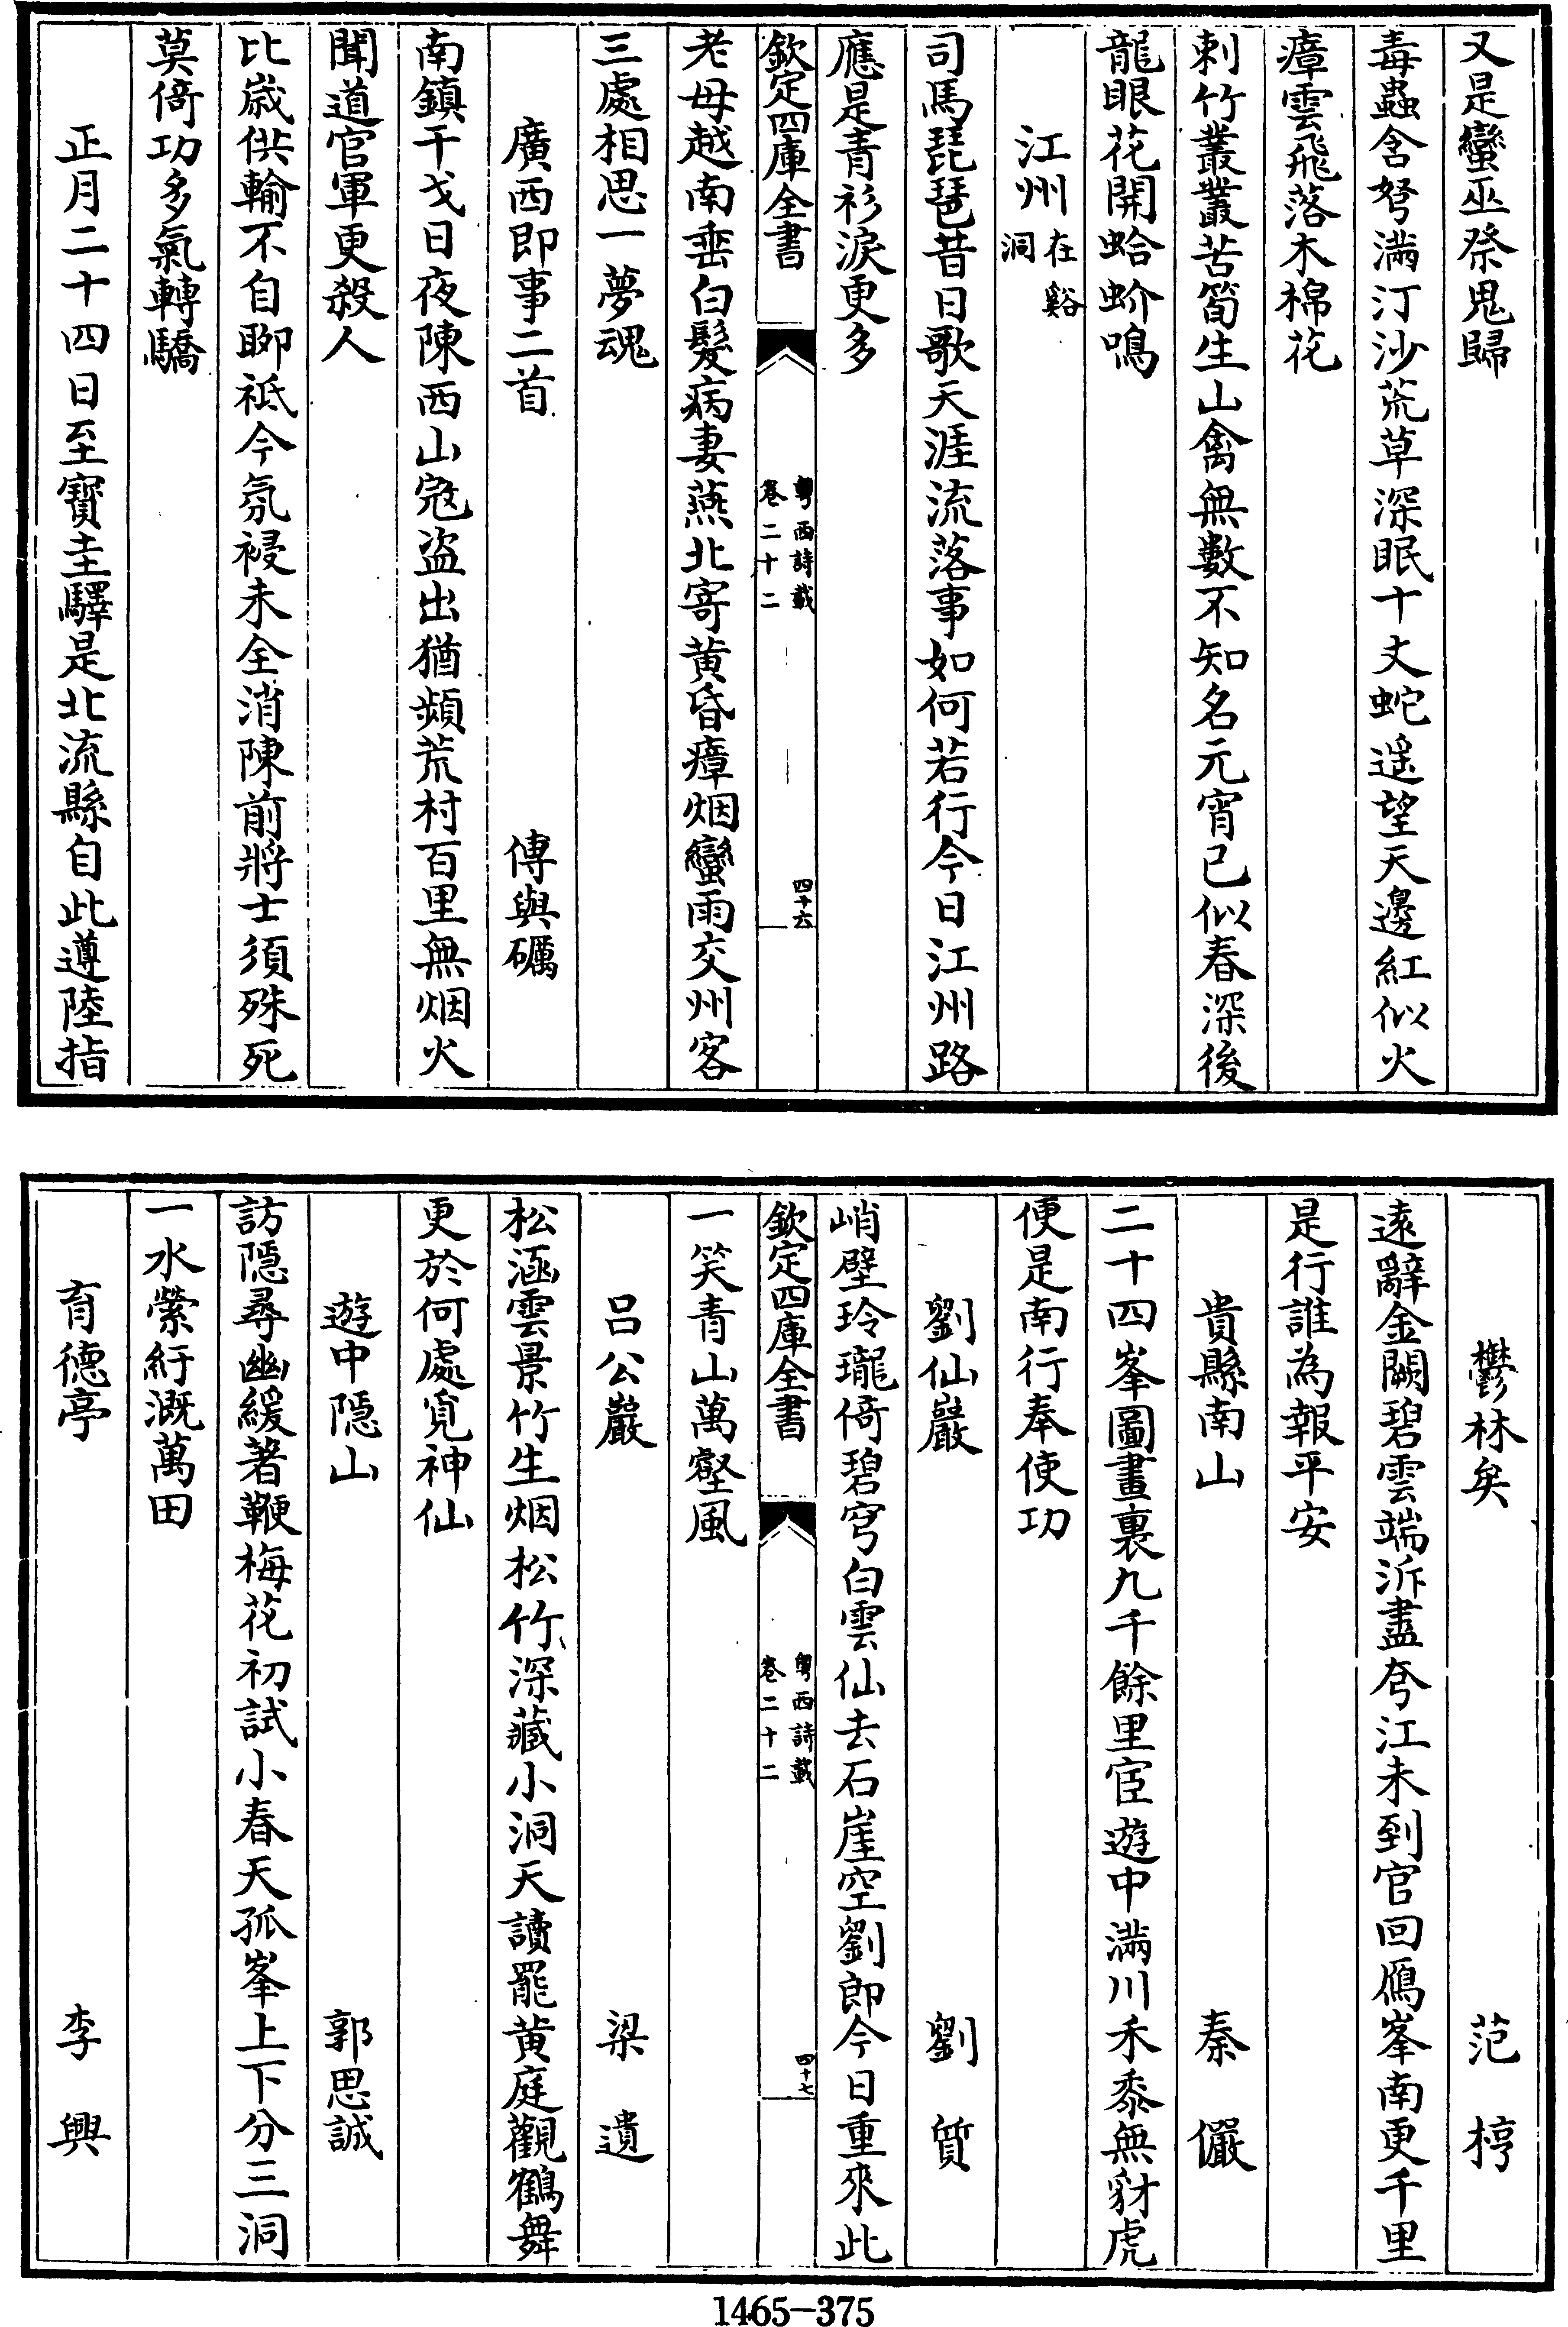 又是蠻巫祭鬼歸
毒蟲含弩滿汀沙荒草深眠十丈蛇遥望天邊紅似火
瘴雲飛落木棉花
刺竹叢叢苦筍生山禽無數不知名元宵已似春深後
龍眼花開蛤蚧鳴
江州在谿洞
司馬琵琶昔日歌天涯流落事如何若行今日江州路
應是青衫淚更多
欽定四庫全書
粤西詩載
卷二十二
四十六
老母越南垂白髮病妻燕北寄黄昏瘴烟蠻雨交州客
三處相思一夢魂
廣西即事二首 傅與礪
南鎮干戈日夜陳西山宼盜出猶頻荒村百里無烟火
聞道官軍更殺人
比嵗供輸不自聊祇今氛祲未全消陳前將士須殊死
莫倚功多氣轉驕
正月二十四日至寶圭驛是北流縣自此遵陸指
鬱林矣 范梈
遠辭金闕碧雲端泝盡夸江未到官回鴈峯南更千里
是行誰為報平安
貴縣南山 秦儼
二十四峯圖畫裏九千餘里宦遊中滿川禾黍無豺虎
便是南行奉使功
劉仙巖 劉質
峭壁玲瓏倚碧穹白雲仙去石崖空劉郎今日重來此
欽定四庫全書
粤西詩載
卷二十二
四十七
一笑青山萬壑風
吕公巖 梁遺
松涵雲景竹生烟松竹深藏小洞天讀罷黄庭觀鶴舞
更於何處覓神仙
遊中隠山 郭思誠
訪隠尋幽緩著鞭梅花初試小春天孤峯上下分三洞
一水縈紆溉萬田
育德亭 李興
1465-375